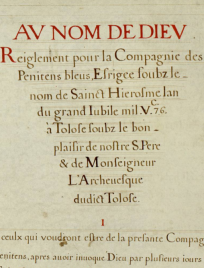 AV NOM DE DIEV
Reiglement pour la Compagnie des
Penitens bleus, Esrigee soubz le
nom de Sainct Hierosme lan
du grand Iubile mil V.c 76.
à Tolose soubz le bon
plaisir de nostre S. Pere
& de Monseigneur
L'Archeuesque
dudict Tolose.
I
ceulx qui voudront estre de la presante Compag
enitens, apres auoir inuoque Dieu par plusieurs iours